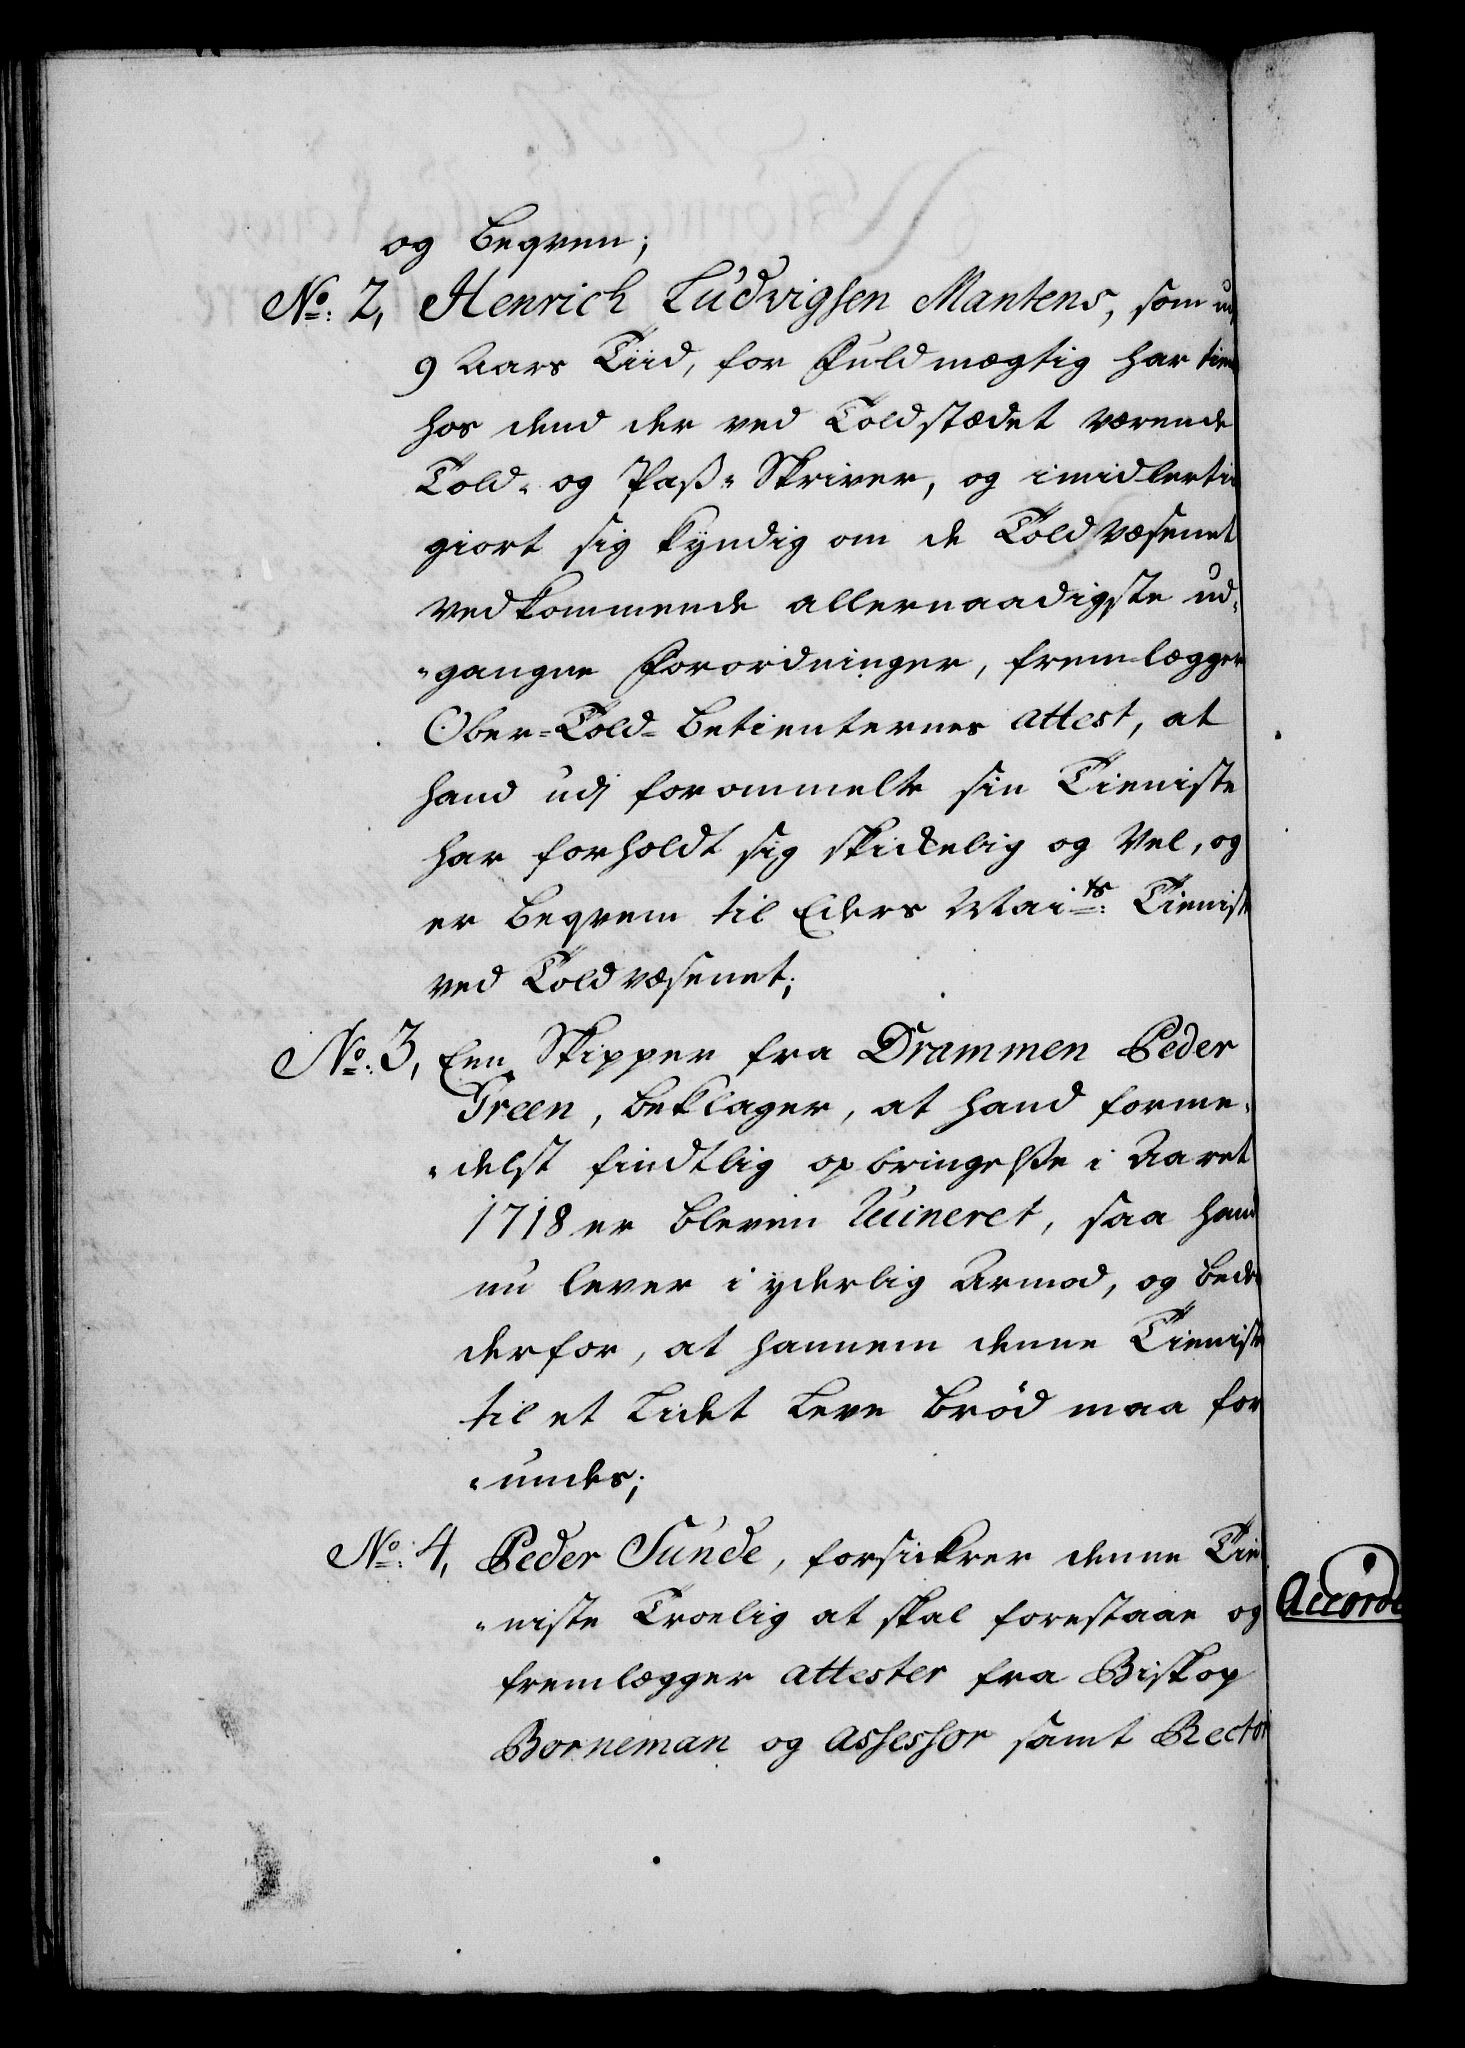 og beqvem;
No. 2, Henrich Ludvigsen Mantens, som ud
9 Aars Tiid, for Fuldmægtig har tien
hos dend der ved Toldstædet værende
Told- og Pass-Skriver, og imidlertid
giort sig kyndig om de Toldvæsenet
vedkommende allernaadigste ud-
-gangne Forordninger, fremlægger
Ober-Told-betienternes attest, at
hand udj forommelte sin Tieniste
har forholdt sig skickelig og vel, og
er beqvem til Eders Maits: Tieniste
ved Toldvæsenet;
No. 3, Een Skipper fra Drammen Peder
Green, beklager, at hand forme-
-delst findtlig opbringelse i Aaret
1718 er bleven Ruineret, saa hand
nu lever i yderlig Armod, og beder
derfor, at hannem denne Tieniste
til et Lidet Leve brød maa for
-undes;
No. 4, Peder Sunde, forsickrer denne Tie
-niste Troelig at skal forestaae og
fremlægger attester fra Biskop
Borneman og Assessor samt Rector
Accorde